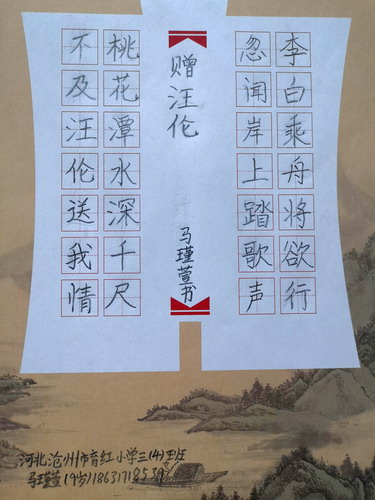 李白乘舟将欲行
忽闻岸上踏歌声
赠汪伦
马瑾萱书
桃花潭水深千尺
不及汪伦送我情
河北沧州市育红小学三(4)班
马瑾萱(9岁)18631718539